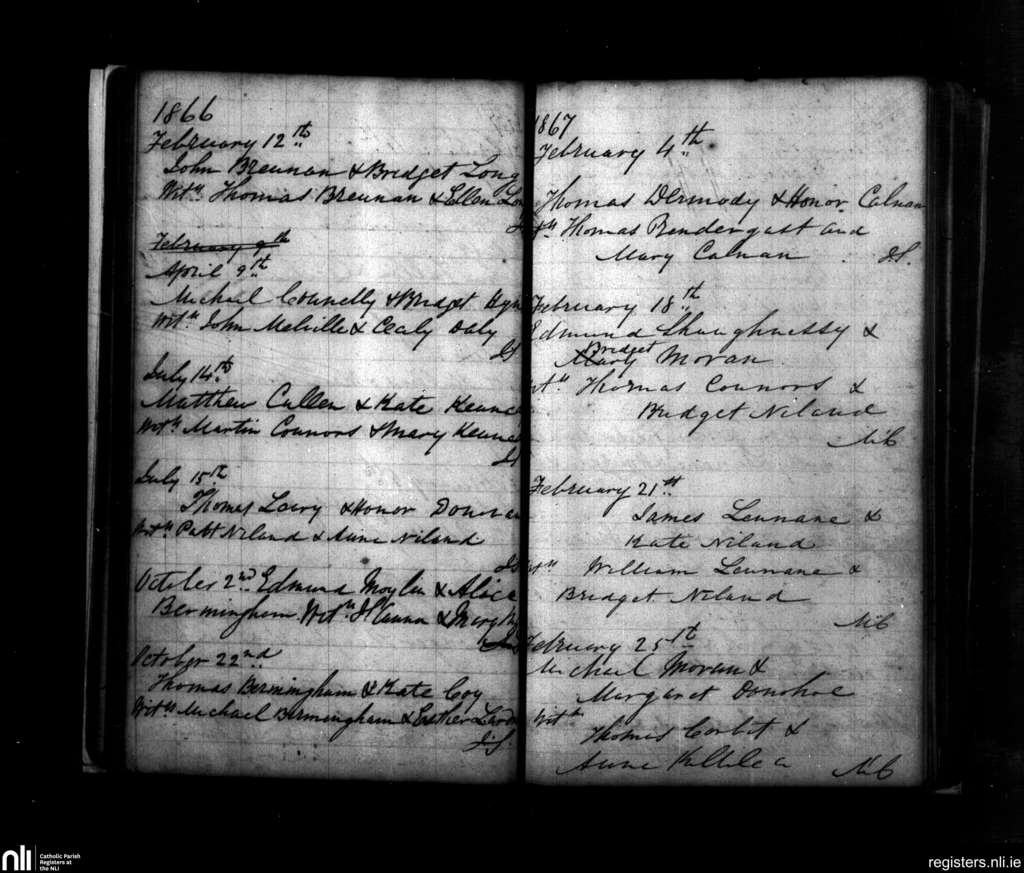 1866
February 12th
John Brennan & Bridget Long
Wits Thomas Brennan & Ellen
February 9th
April 9th
Michael Connelly & Bridget
Wits John Melville & Cealy Daly
July 14th
Matthew Cullen & Kate
Wits Martin Connors & Mary
July 15th
Thomas Lowry & Honor
Wits Patt Niland & Anne Niland
October 2nd Edmund Moylan & Alice
Bermingham. Wits &
October 22nd
Thomas Bermingham & Kate Coy
Wits Michael Bermingham & Esther
J.S.
1867
February 4th
Thomas Dermody & Honor Calnan
Thomas Prendergast and
Mary Calnan JS.
February 18th
Edmund Shaughnessy &
Bridget
Mary Moran
Thomas Connors &
Bridget Niland
February 21st
James Lennane &
Kate Niland
William Lennane &
Bridget Niland
February 25th
Michael Moran &
Margaret Donohoe
Wits
Thomas Corbet &
Anne Killilea
nli Catholic Parish
Registers at
the NLI
registers.nli.ie